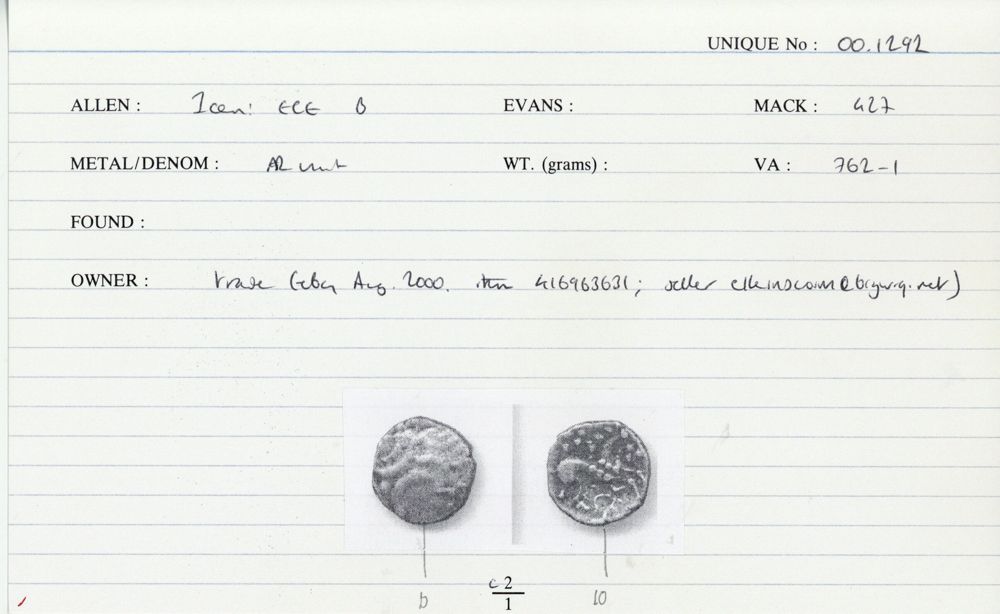 UNIQUE No : 00.1292
ALLEN : Iceni ECE B EVANS : MACK : 427
METAL/DENOM : AR unit WT. (grams) : VA : 762-1
FOUND :
OWNER : trade (eBay Aug. 2000. item 416963631; seller
b c2/1 10